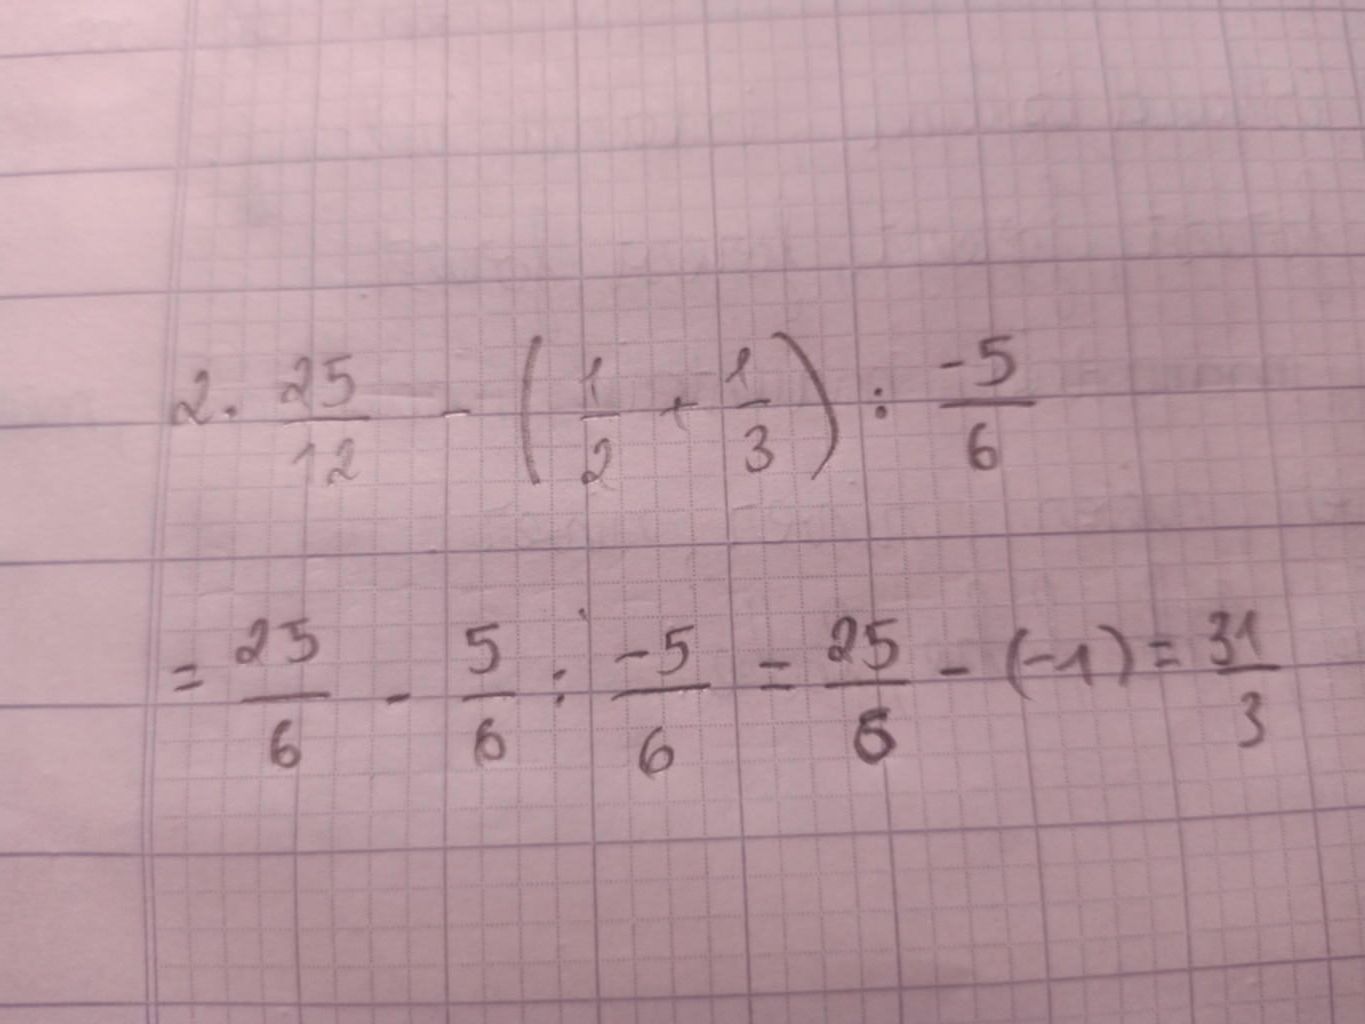 2. 25/12 - (1/2 + 1/3) : -5/6
= 25/6 - 5/6 : -5/6 = 25/6 - (-1) = 31/3